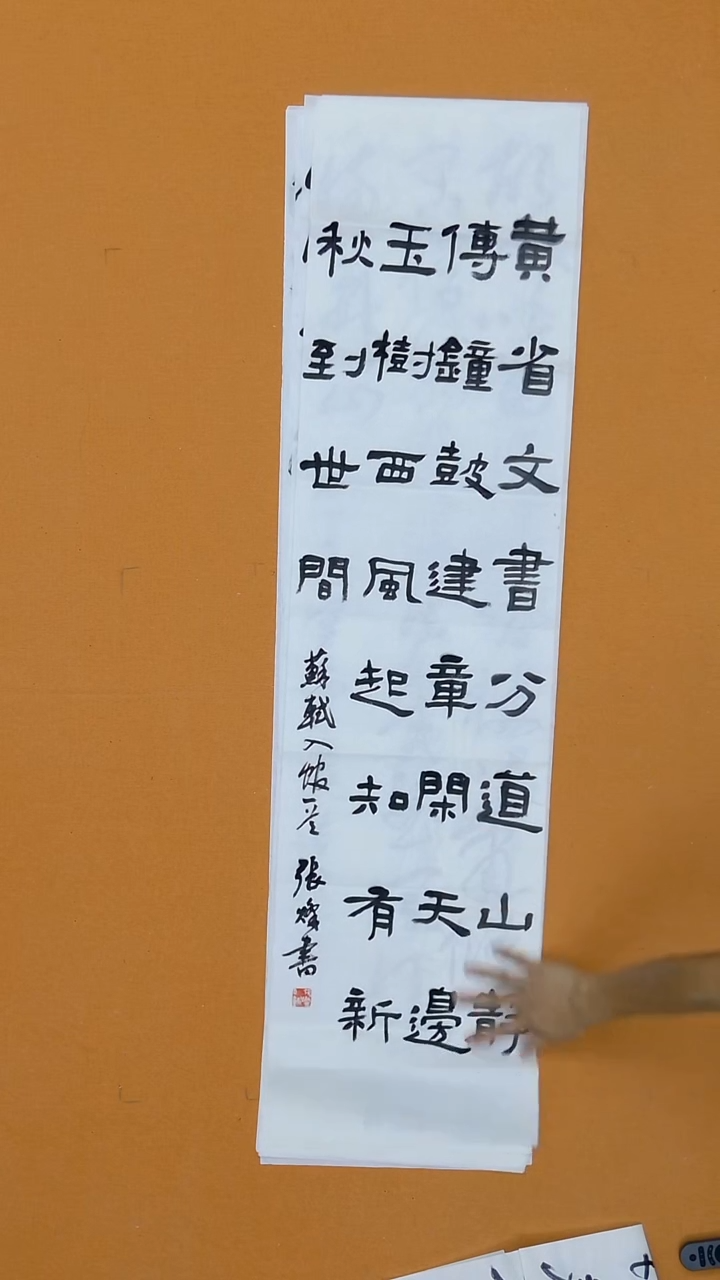 黃省文書分道山静
傳鐘鼓建章閑天邊
玉樹西風起知有新
秋到世間
蘇軾入館一首 張燦書